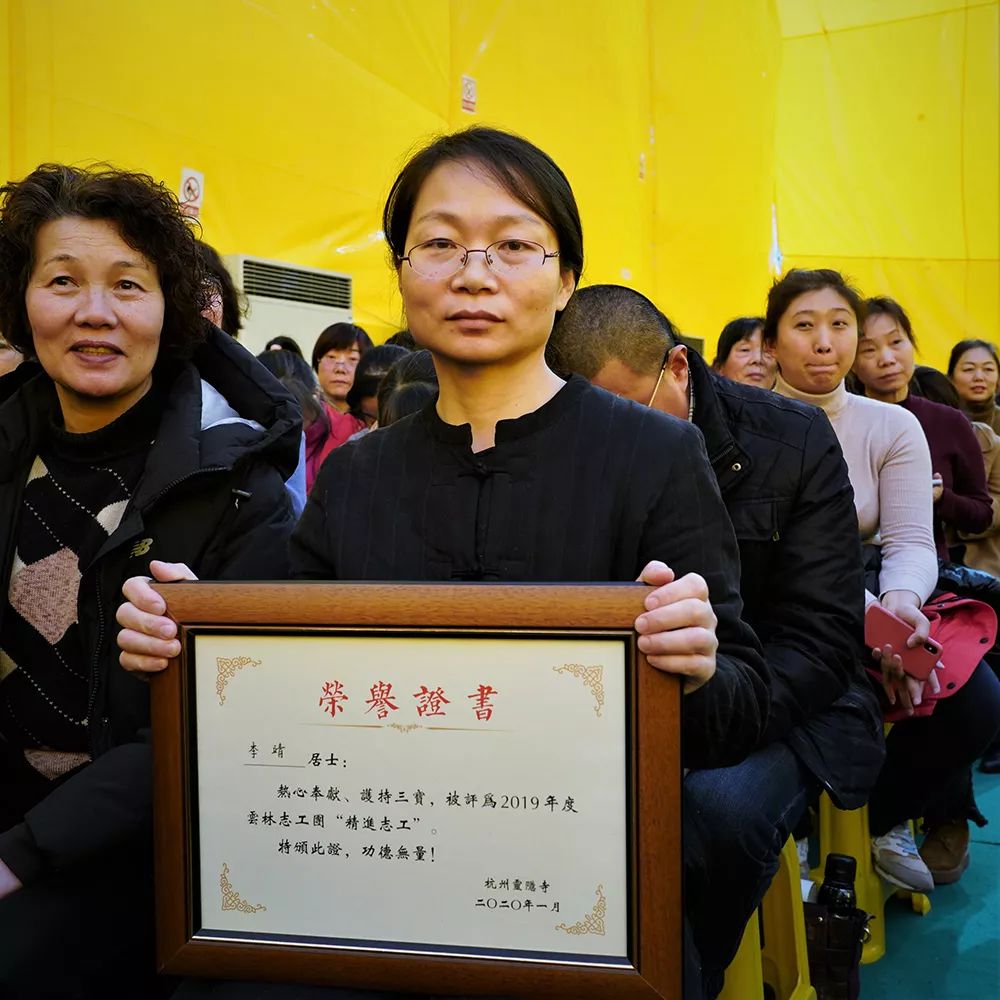 榮譽證書
李靖居士：
熱心奉獻、護持三寶，被評爲2019年度
雲林志工團“精進志工”。
特頒此證，功德無量！
杭州靈隱寺
二〇二〇年一月